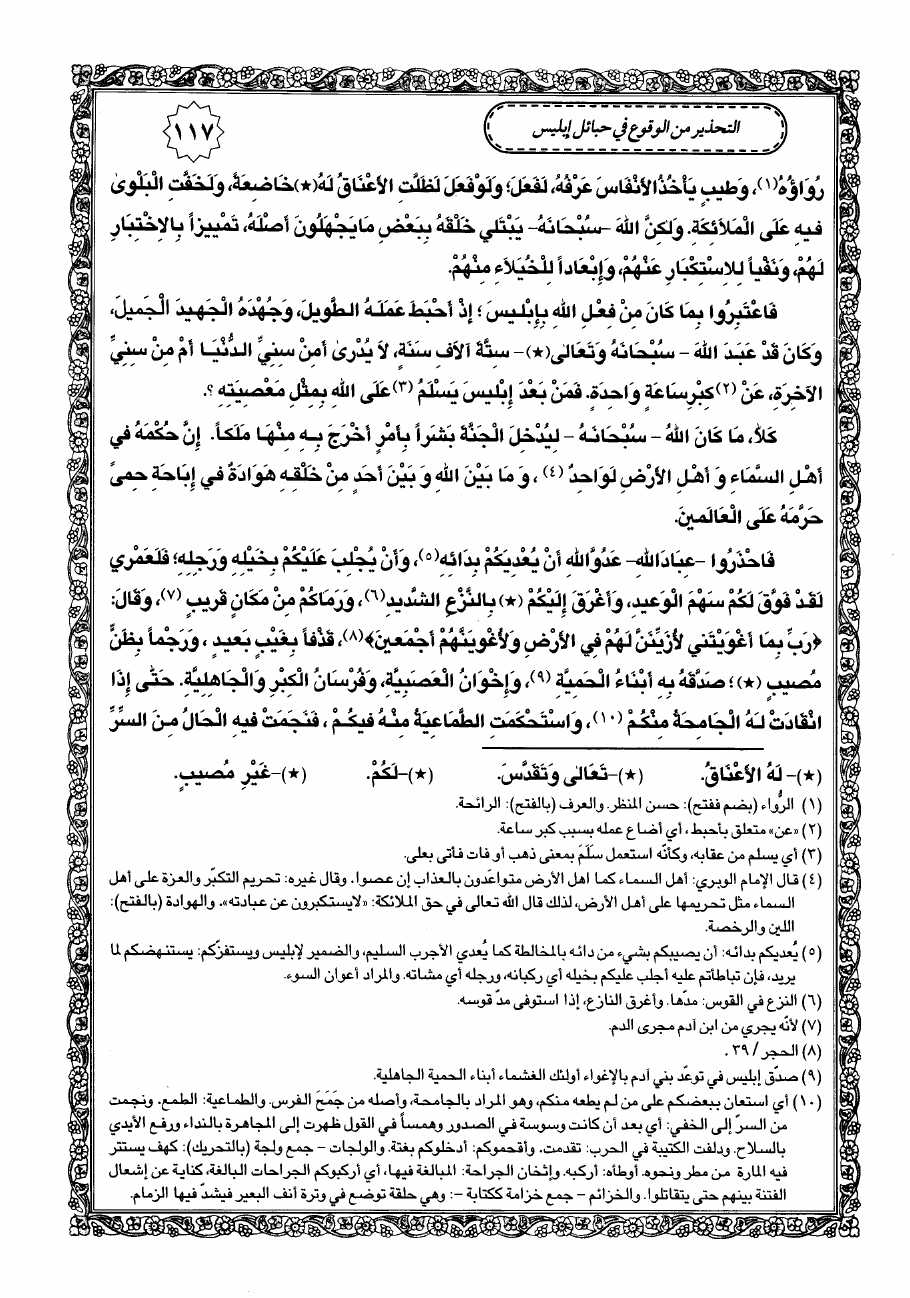 التحذير من الوقوع في حبائل إبليس
١١٧
رُوَاؤُهُ(١)، وَطِيبٍ يَأْخُذُ الأَنْفَاسَ عَرْفُهُ، لَفَعَلَ؛ وَلَوْ فَعَلَ لَظَلَّتِ الأَعْنَاقُ لَهُ(★) خَاضِعَةً، وَلَخَفَّتِ الْبَلْوىٰ
فيهِ عَلَى الْمَلاَئِكَةِ. وَلكِنَّ اللهَ -سُبْحَانَهُ- يَبْتَلي خَلْقَهُ بِبَعْضِ مَا يَجْهَلُونَ أَصْلَهُ، تَمْييزاً بِالاِخْتِبَارِ
لَهُمْ، وَنَفْياً لِلاِسْتِكْبَارِ عَنْهُمْ، وَإِبْعَاداً لِلْخُيَلاَءِ مِنْهُمْ.
فَاعْتَبِرُوا بِمَا كَانَ مِنْ فِعْلِ اللهِ بِإِبْليسَ؛ إِذْ أَحْبَطَ عَمَلَهُ الطَّويلَ، وَجُهْدَهُ الْجَهيدَ الْجَميلَ،
وَكَانَ قَدْ عَبَدَ اللهَ - سُبْحَانَهُ وَتَعَالىٰ(★)- سِتَّةَ آلاَفِ سَنَةٍ، لاَ يُدْرىٰ أَمِنْ سِنِيِّ الدُّنْيَا أَمْ مِنْ سِنِيِّ
الآخِرَةِ، عَنْ (٢) كِبْرِ سَاعَةٍ وَاحِدَةٍ. فَمَنْ بَعْدَ إِبْليسَ يَسْلَمُ (٣) عَلَى اللهِ بِمِثْلِ مَعْصِيَتِهِ ؟.
كَلاَّ، مَا كَانَ اللهُ - سُبْحَانَهُ - لِيُدْخِلَ الْجَنَّةَ بَشَراً بِأَمْرٍ أَخْرَجَ بِهِ مِنْهَا مَلَكاً. إِنَّ حُكْمَهُ في
أَهْلِ السَّمَاءِ وَ أَهْلِ الأَرْضِ لَوَاحِدٌ (٤)، وَ مَا بَيْنَ اللهِ وَ بَيْنَ أَحَدٍ مِنْ خَلْقِهِ هَوَادَةٌ في إِبَاحَةِ حِمىً
حَرَّمَهُ عَلَى الْعَالَمينَ.
فَاحْذَرُوا -عِبَادَ اللهِ- عَدُوَّ اللهِ أَنْ يُعْدِيَكُمْ بِدَائِهِ(٥)، وَأَنْ يُجْلِبَ عَلَيْكُمْ بِخَيْلِهِ وَرَجِلِهِ؛ فَلَعَمْري
لَقَدْ فَوَّقَ لَكُمْ سَهْمَ الْوَعيدِ، وَأَغْرَقَ إِلَيْكُمْ (★) بِالنَّزْعِ الشَّديدِ(٦)، وَرَمَاكُمْ مِنْ مَكَانٍ قَريبٍ (٧)، وَقَالَ:
﴿رَبِّ بِمَا أَغْوَيْتَني لأُزَيِّنَنَّ لَهُمْ فِي الأَرْضِ وَلأُغْوِيَنَّهُمْ أَجْمَعينَ﴾(٨)، قَذْفاً بِغَيْبٍ بَعيدٍ، وَرَجْماً بِظَنٍّ
مُصيبٍ (★)؛ صَدَّقَهُ بِهِ أَبْنَاءُ الْحَمِيَّةِ (٩)، وَإِخْوَانُ الْعَصَبِيَّةِ، وَفُرْسَانُ الْكِبْرِ وَالْجَاهِلِيَّةِ. حَتّىٰ إِذَا
انْقَادَتْ لَهُ الْجَامِحَةُ مِنْكُمْ (١٠)، وَاسْتَحْكَمَتِ الطَّمَاعِيَةُ مِنْهُ فيكُمْ، فَنَجَمَتْ فيهِ الْحَالُ مِنَ السِّرِّ
(★)- لَهُ الأَعْنَاقُ. (★)-تَعَالىٰ وَتَقَدَّسَ. (★)-لَكُمْ. (★)-غَيْرِ مُصيبٍ.
(١) الرُّواء (بضم ففتح): حسن المنظر. والعرف (بالفتح): الرائحة.
(٢) «عن» متعلق بأحبط، أي أضاع عمله بسبب كبر ساعة.
(٣) أي يسلم من عقابه، وكأنّه استعمل سلّمَ بمعنى ذهب أو فات فأتى بعلى.
(٤) قال الإمام الوبري: أهل السماء كما اهل الأرض متواعَدون بالعذاب إن عصوا. وقال غيره: تحريم التكبّر والعزة على أهل
السماء مثل تحريمها على أهل الأرض، لذلك قال الله تعالى في حق الملائكة: «لايستكبرون عن عبادته». والهوادة (بالفتح):
اللين والرخصة.
(٥) يُعديكم بدائه: أن يصيبكم بشيء من دائه بالمخالطة كما يُعدي الأجرب السليم، والضمير لإبليس ويستفزّكم: يستنهضكم لما
يريد، فإن تباطأتم عليه أجلب عليكم بخيله أي ركبانه، ورجله أي مشاته. والمراد أعوان السوء.
(٦) النزع في القوس: مدّها. وأغرق النازع، إذا استوفى مدّ قوسه.
(٧) لأنّه يجري من ابن آدم مجرى الدم.
(٨) الحجر / ٣٩ .
(٩) صدّق إبليس في توعّد بني آدم بالإغواء أولئك الغشماء أبناء الحمية الجاهلية.
(١٠) أي استعان ببعضكم على من لم يطعه منكم، وهو المراد بالجامحة، وأصله من جَمَحَ الفرس. والطماعية: الطمع. ونجمت
من السرّ إلى الخفي: أي بعد أن كانت وسوسة في الصدور وهمساً في القول ظهرت إلى المجاهرة بالنداء ورفع الأيدي
بالسلاح. ودلفت الكتيبة في الحرب: تقدمت. وأقحموكم: أدخلوكم بغتة. والولجات - جمع ولجة (بالتحريك): كهف يستتر
فيه المارة من مطر ونحوه. أوطأه: أركبه. وإثخان الجراحة: المبالغة فيها، أي أركبوكم الجراحات البالغة، كناية عن إشعال
الفتنة بينهم حتى يتقاتلوا. والخزائم - جمع خزامة ككتابة -: وهي حلقة توضع في وترة أنف البعير فيشدّ فيها الزمام.